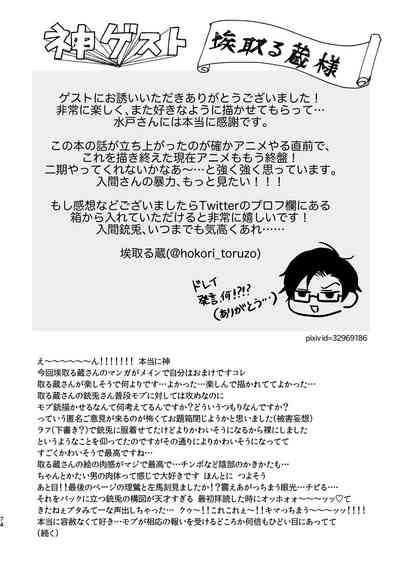 神ゲスト
埃取る蔵様
ゲストにお誘いいただきありがとうございました！
非常に楽しく、また好きなように描かせてもらって…
水戸さんには本当に感謝です。
この本の話が立ち上がったのが確かアニメやる直前で、
これを描き終えた現在アニメももう終盤！
二期やってくれないかなあ〜…と強く強く思っています。
入間さんの暴力、もっと見たい！！！
もし感想などございましたらTwitterのプロフ欄にある
箱から入れていただけると非常に嬉しいです！
入間銃兎、いつまでも気高くあれ……
埃取る蔵(@hokori_toruzo)
ドレイ
発言、何!?!?
(ありがとう…)
pixivid=32969186
え〜〜〜〜〜〜ん!!!!!!! 本当に神
今回埃取る蔵さんのマンガがメインで自分はおまけですコレ
取る蔵さんが楽しそうで何よりです…よかった…楽しんで描かれててよかった…
取る蔵さんの銃兎さん普段モブに対しては攻めなのに
モブ銃描かせるなんて何考えてるんですか？どういうつもりなんですか？
って匿名ご意見が来るのが怖くてお題箱閉じようかと思いました(被害妄想)
ラフ(下書き？)で銃兎に服着せてたけどよりかわいそうになるから裸にしました
というようなことを仰ってたのですがその通りによりかわいそうになってて
すごくかわいそうで最高ですね…
取る蔵さんの絵の肉感がマジで最高で…チンポなど陰部のかきかたも…
ちゃんとかたい男の肉体って感じで大好きです ほんとに つよそう
あと目!!最後のページの理鶯と左馬刻見ましたか!?震えあがっちまう眼光…チビる…
それをバックに立つ銃兎の構図が天才すぎる 最初拝読した時にオッホォォ〜〜〜ッッ♡て
きたねぇブタみてーな声出しちゃった… クゥ〜!!これこれぇ〜!!キマっちまう〜〜〜ッッ!!!!
本当に容赦なくて好き…モブが相応の報いを受けるどころか何倍もひどい目にあってて
(続く)
74